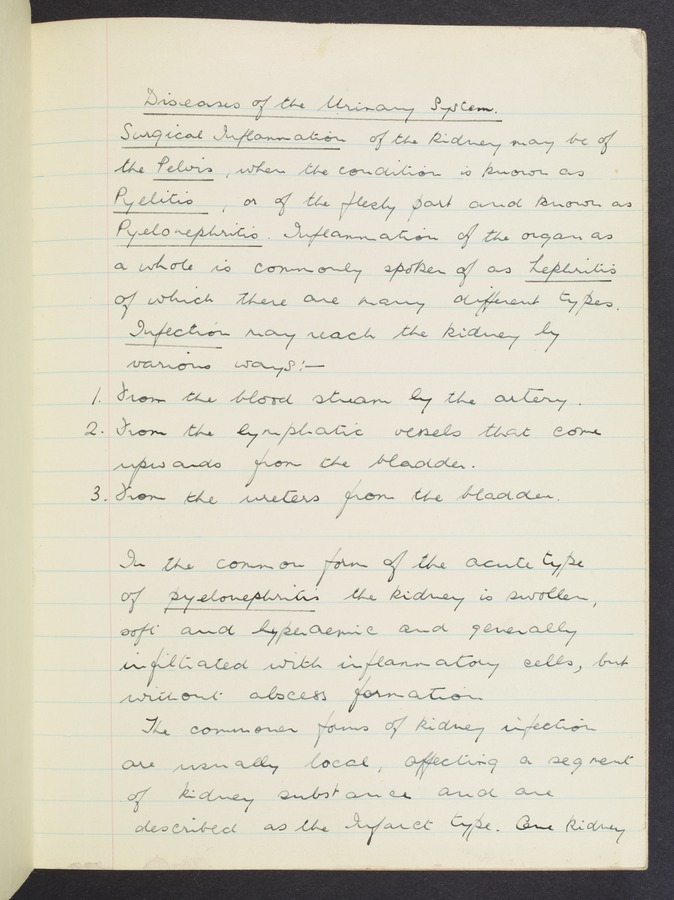 Diseases of the Urinary System.
Surgical Inflammation of the Kidney may be of
the Pelvis, when the condition is known as
Pyelitis, or of the fleshy part and known as
Pyelonephritis. Inflammation of the organ as
a whole is commonly spoken of as Nephritis
of which there are many different types.
Infection may reach the kidney by
various ways:—
1. From the blood stream by the artery.
2. From the lymphatic vessels that come
upwards from the bladder.
3. From the ureters from the bladder.
In the common form of the acute type
of pyelonephritis the kidney is swollen,
soft and hyperaemic and generally
infiltrated with inflammatory cells, but
without abscess formation
The commoner forms of kidney infection
are usually local, affecting a segment
of kidney substance and are
described as the Infarct type. One kidney